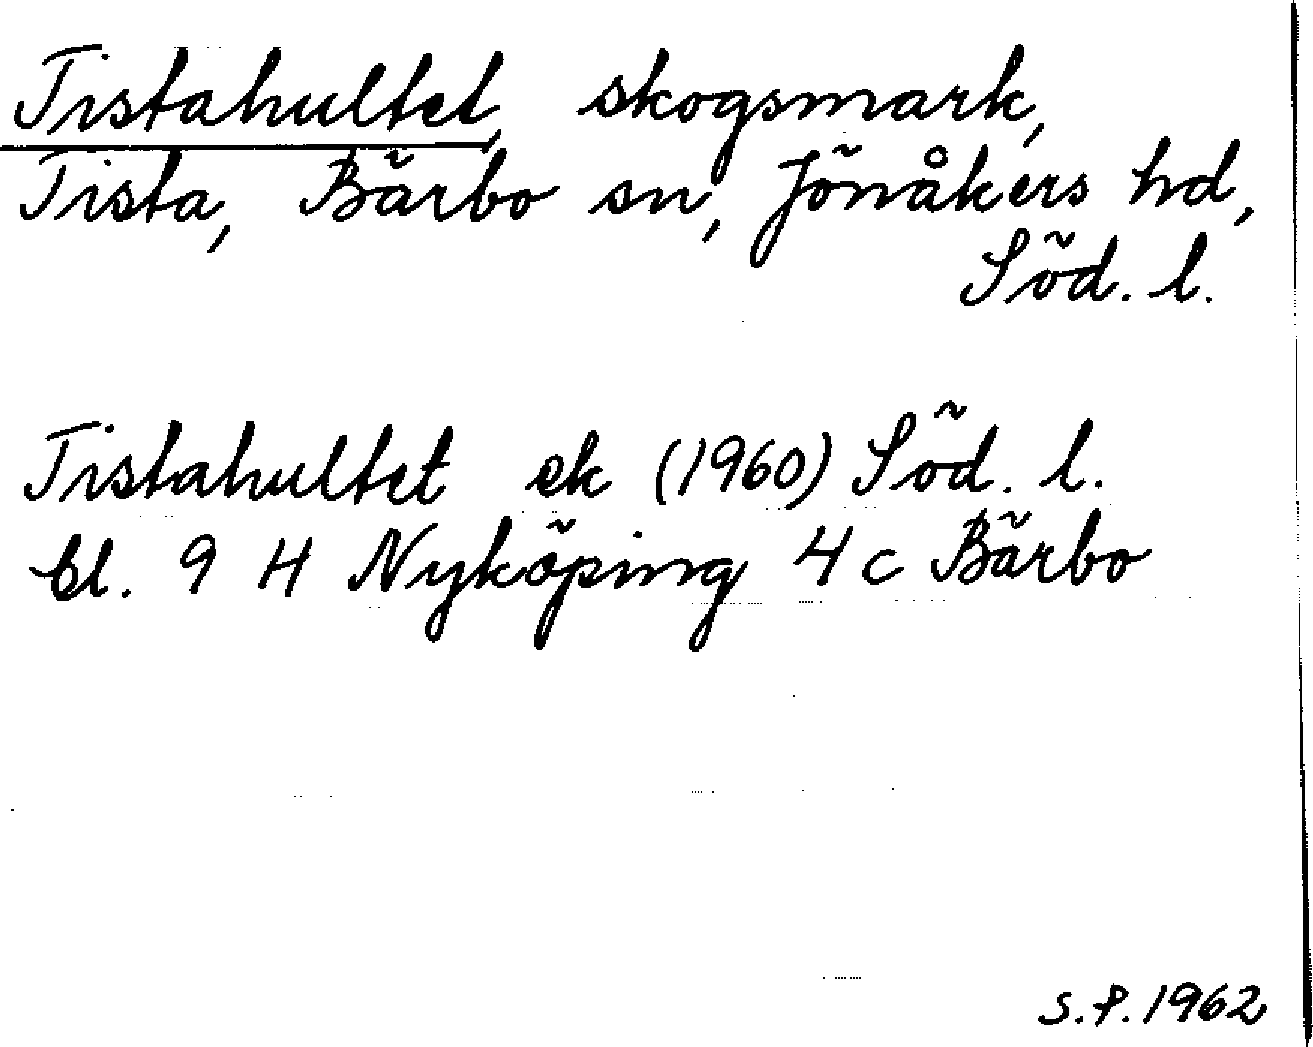 Tistahultet, skogsmark,
Tista, Bärbo sn, Jönåkers hd,
Söd. l.
Tistahultet ek (1960) Söd. l.
bl. 9 H Nyköping 4 c Bärbo
S.P. 1962